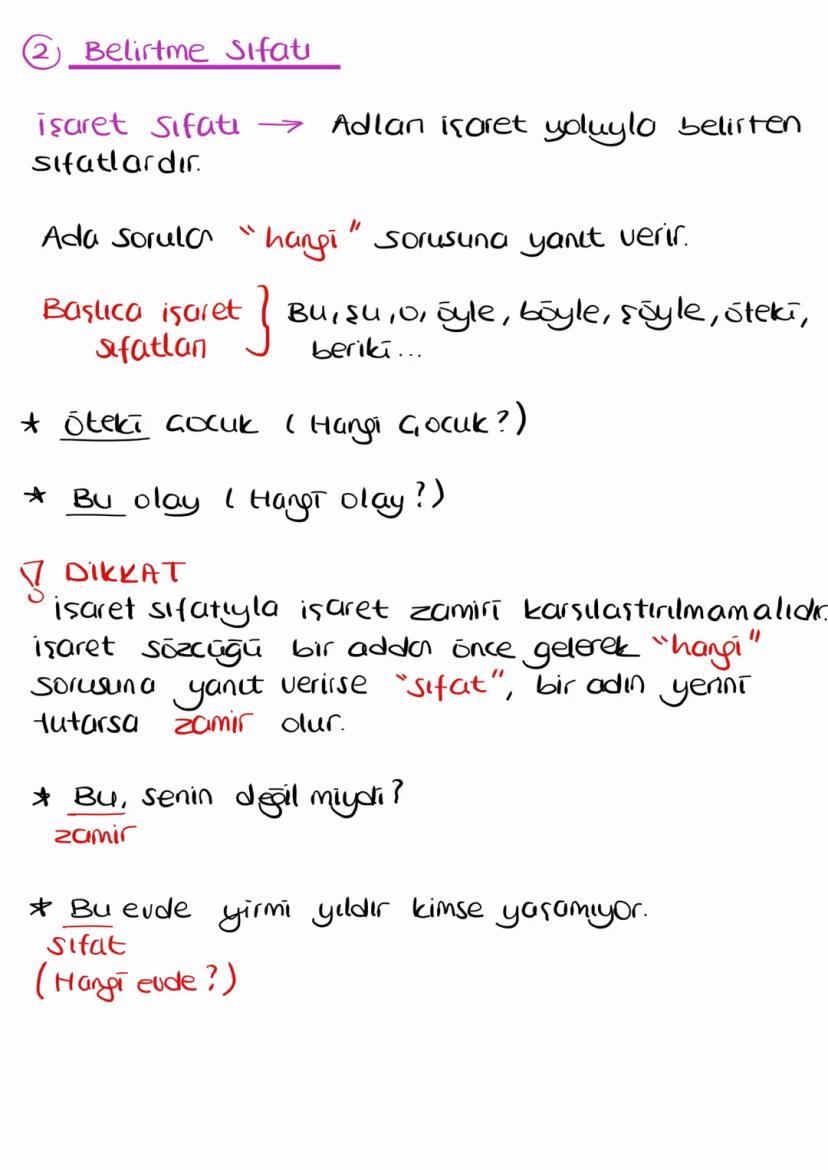 2 Belirtme Sıfatı
işaret sıfatı → Adları işaret yoluyla belirten
sıfatlardır.
Ada sorulan "hangi" sorusuna yanıt verir.
Başlıca işaret sıfatları } Bu, şu, o, öyle, böyle, şöyle, öteki,
beriki...
* Öteki çocuk ( Hangi Çocuk?)
* Bu olay ( Hangi olay?)
! DİKKAT
işaret sıfatıyla işaret zamiri karşılaştırılmamalıdır.
işaret sözcüğü bir addan önce gelerek "hangi"
sorusuna yanıt verirse "sıfat", bir adın yerini
tutarsa zamir olur.
* Bu, senin değil miydi?
zamir
* Bu evde yirmi yıldır kimse yaşamıyor.
sıfat
(Hangi evde?)